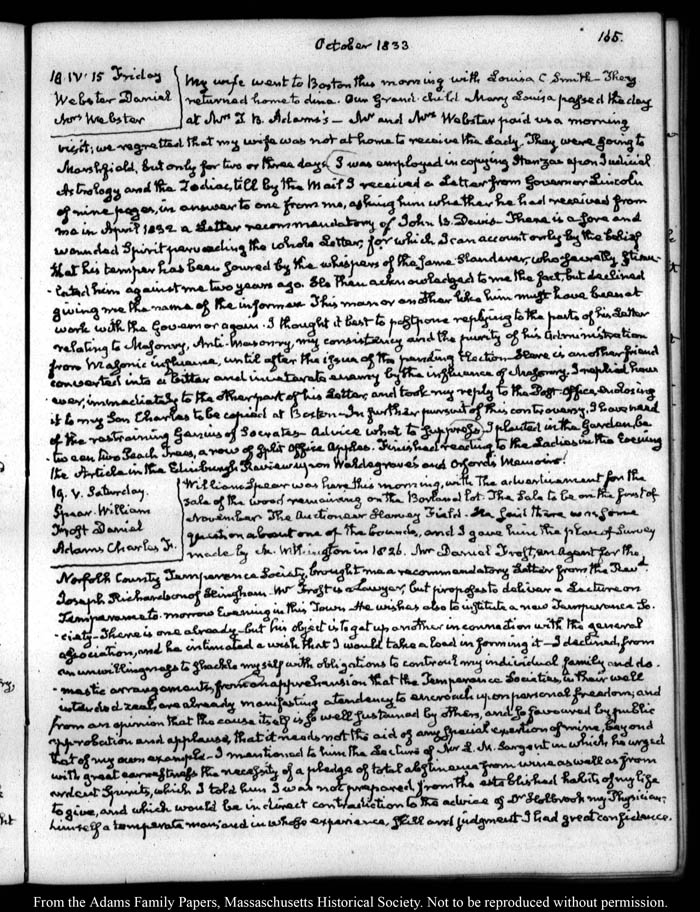 October 1833
165.
18. IV. 15 Friday
Webster Daniel
Mrs Webster
My wife went to Boston this morning with Louisa C Smith — They
returned home to dine. Our Grand-child Mary Louisa passed the day
at Mrs T. B. Adams's — Mr and Mrs Webster paid us a morning
visit; we regretted that my wife was not at home to receive the Lady. They were going to
Marshfield, but only for two or three days. I was employed in copying Stanzas upon Judicial
Astrology and the Zodiac, till by the Mail I received a Letter from Governor Lincoln
of nine pages, in answer to one from me, asking him whether he had received from
me in April 1832 a Letter recommendatory of John B. Davis. There is a sore and
wounded Spirit pervading the whole Letter, for which I can account only by the belief
that his temper has been soured by the whispers of the same Slanderer, who secretly stimu-
-lated him against me two years ago. He then acknowledged to me the fact, but declined
giving me the name of the informer. This man or another like him must have been at
work with the Governor again. I thought it best to postpone replying to the parts of his Letter
relating to Masonry, Anti-Masonry, my consistency and the purity of his Administration
from Masonic influence, until after the issue of the pending Election. Here is another friend
converted into a bitter and inveterate enemy by the influence of Masonry. I replied how-
-ever, immediately to the other part of his Letter, and took my reply to the Post-Office, enclosing
it to my Son Charles to be copied at Boston — In further pursuit of this controversy, I have need
of the restraining Genius of Socrates. Advice what to suppress. I planted in the Garden, be-
tween two Peach Trees, a row of Split Office Apples. Finished reading to the Ladies in the Evening
the Article in the Edinburgh Review upon Waldegrave's and Orford's Memoirs.
19. V. Saturday.
Spear. William
Frost Daniel
Adams Charles F.
William Spear was here this morning, with the advertisement for the
sale of the wood remaining on the Borland lot. The Sale to be on the first of
November. The Auctioneer Harvey Field. He said there was some
question about one of the bounds, and I gave him the plan of Survey
made by Mr Withington in 1826. Mr Daniel Frost, an Agent for the
Norfolk County Temperance Society, brought me a recommendatory Letter from the Revd.
Joseph Richardson of Hingham. Mr Frost is a Lawyer, but proposes to deliver a Lecture on
Temperance to-morrow Evening in this Town. He wishes also to institute a new Temperance So-
-ciety — There is one already — but his object is to get up another in connection with the general
association, and he intimated a wish that I would take a lead in forming it — I declined, from
an unwillingness to shackle myself with obligations to controul my individual family and do-
-mestic arrangements, from an apprehension that the Temperance Societies, in their well
intended zeal, are already manifesting a tendency to encroach upon personal freedom; and
from an opinion that the cause itself is so well sustained by others, and so favoured by public
approbation and applause, that it needs not the aid of any special exertion of mine, beyond
that of my own example — I mentioned to him the Lecture of Mr L. M. Sargent in which he urged
with great earnestness the necessity of a pledge of total abstinence from wine as well as from
ardent Spirits, which I told him I was not prepared, from the established habits of my life
to give, and which would be in direct contradiction to the advice of Dr Holbrook my Physician:
himself a temperate man; and in whose experience, skill and judgment I had great confidence.
From the Adams Family Papers, Massachusetts Historical Society. Not to be reproduced without permission.